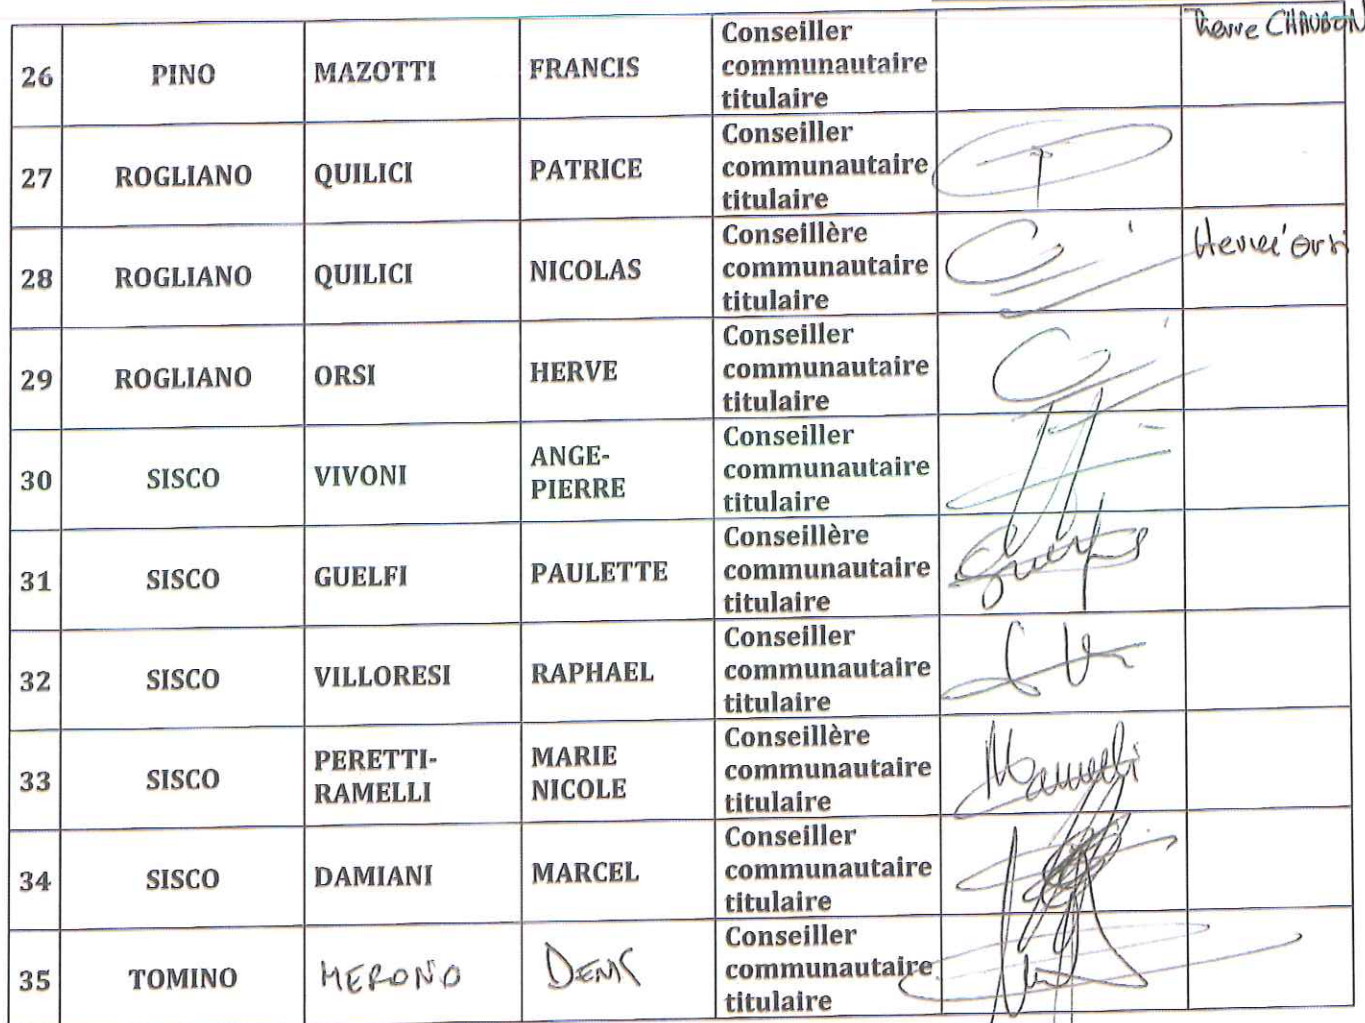 26 PINO MAZOTTI FRANCIS Conseiller
communautaire
titulaire
Pierre CHAUBON
27 ROGLIANO QUILICI PATRICE Conseiller
communautaire
titulaire
28 ROGLIANO QUILICI NICOLAS Conseillère
communautaire
titulaire
Hervé Orsi
29 ROGLIANO ORSI HERVE Conseiller
communautaire
titulaire
30 SISCO VIVONI ANGE-
PIERRE
Conseiller
communautaire
titulaire
31 SISCO GUELFI PAULETTE Conseillère
communautaire
titulaire
32 SISCO VILLORESI RAPHAEL Conseiller
communautaire
titulaire
33 SISCO PERETTI-
RAMELLI
MARIE
NICOLE
Conseillère
communautaire
titulaire
34 SISCO DAMIANI MARCEL Conseiller
communautaire
titulaire
35 TOMINO MERONO Conseiller
communautaire
titulaire